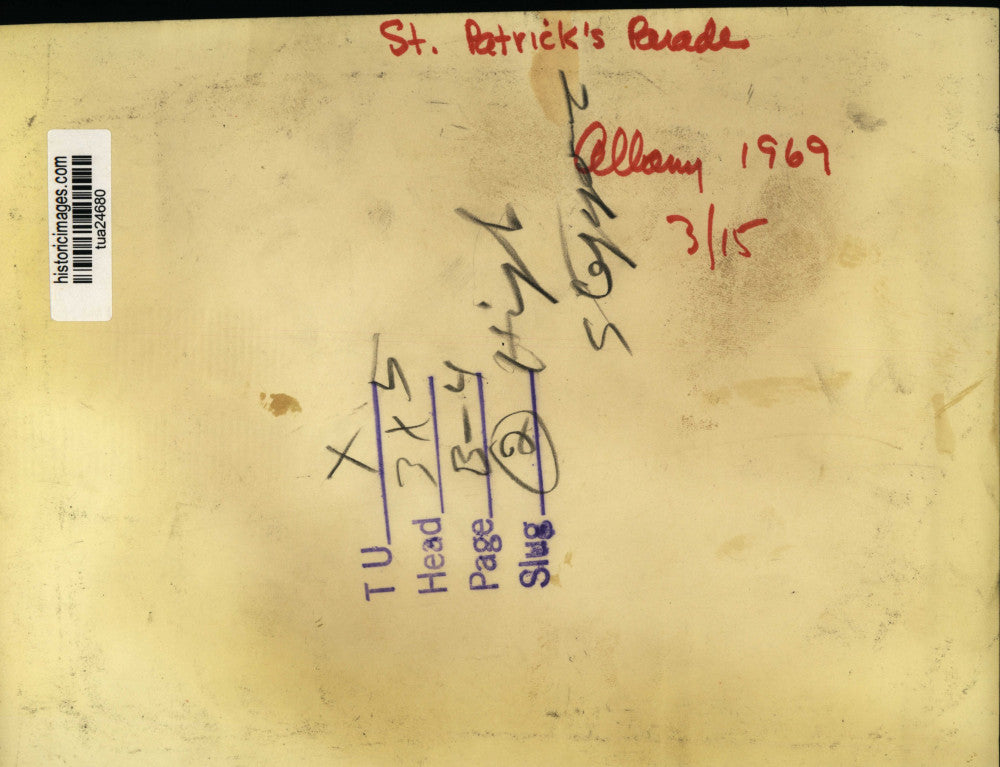 St. Patrick's Parade
Albany 1969
3/15
historicimages.com
tua24680
TU X
Head 3 X 5
Page B-4
Slug 2